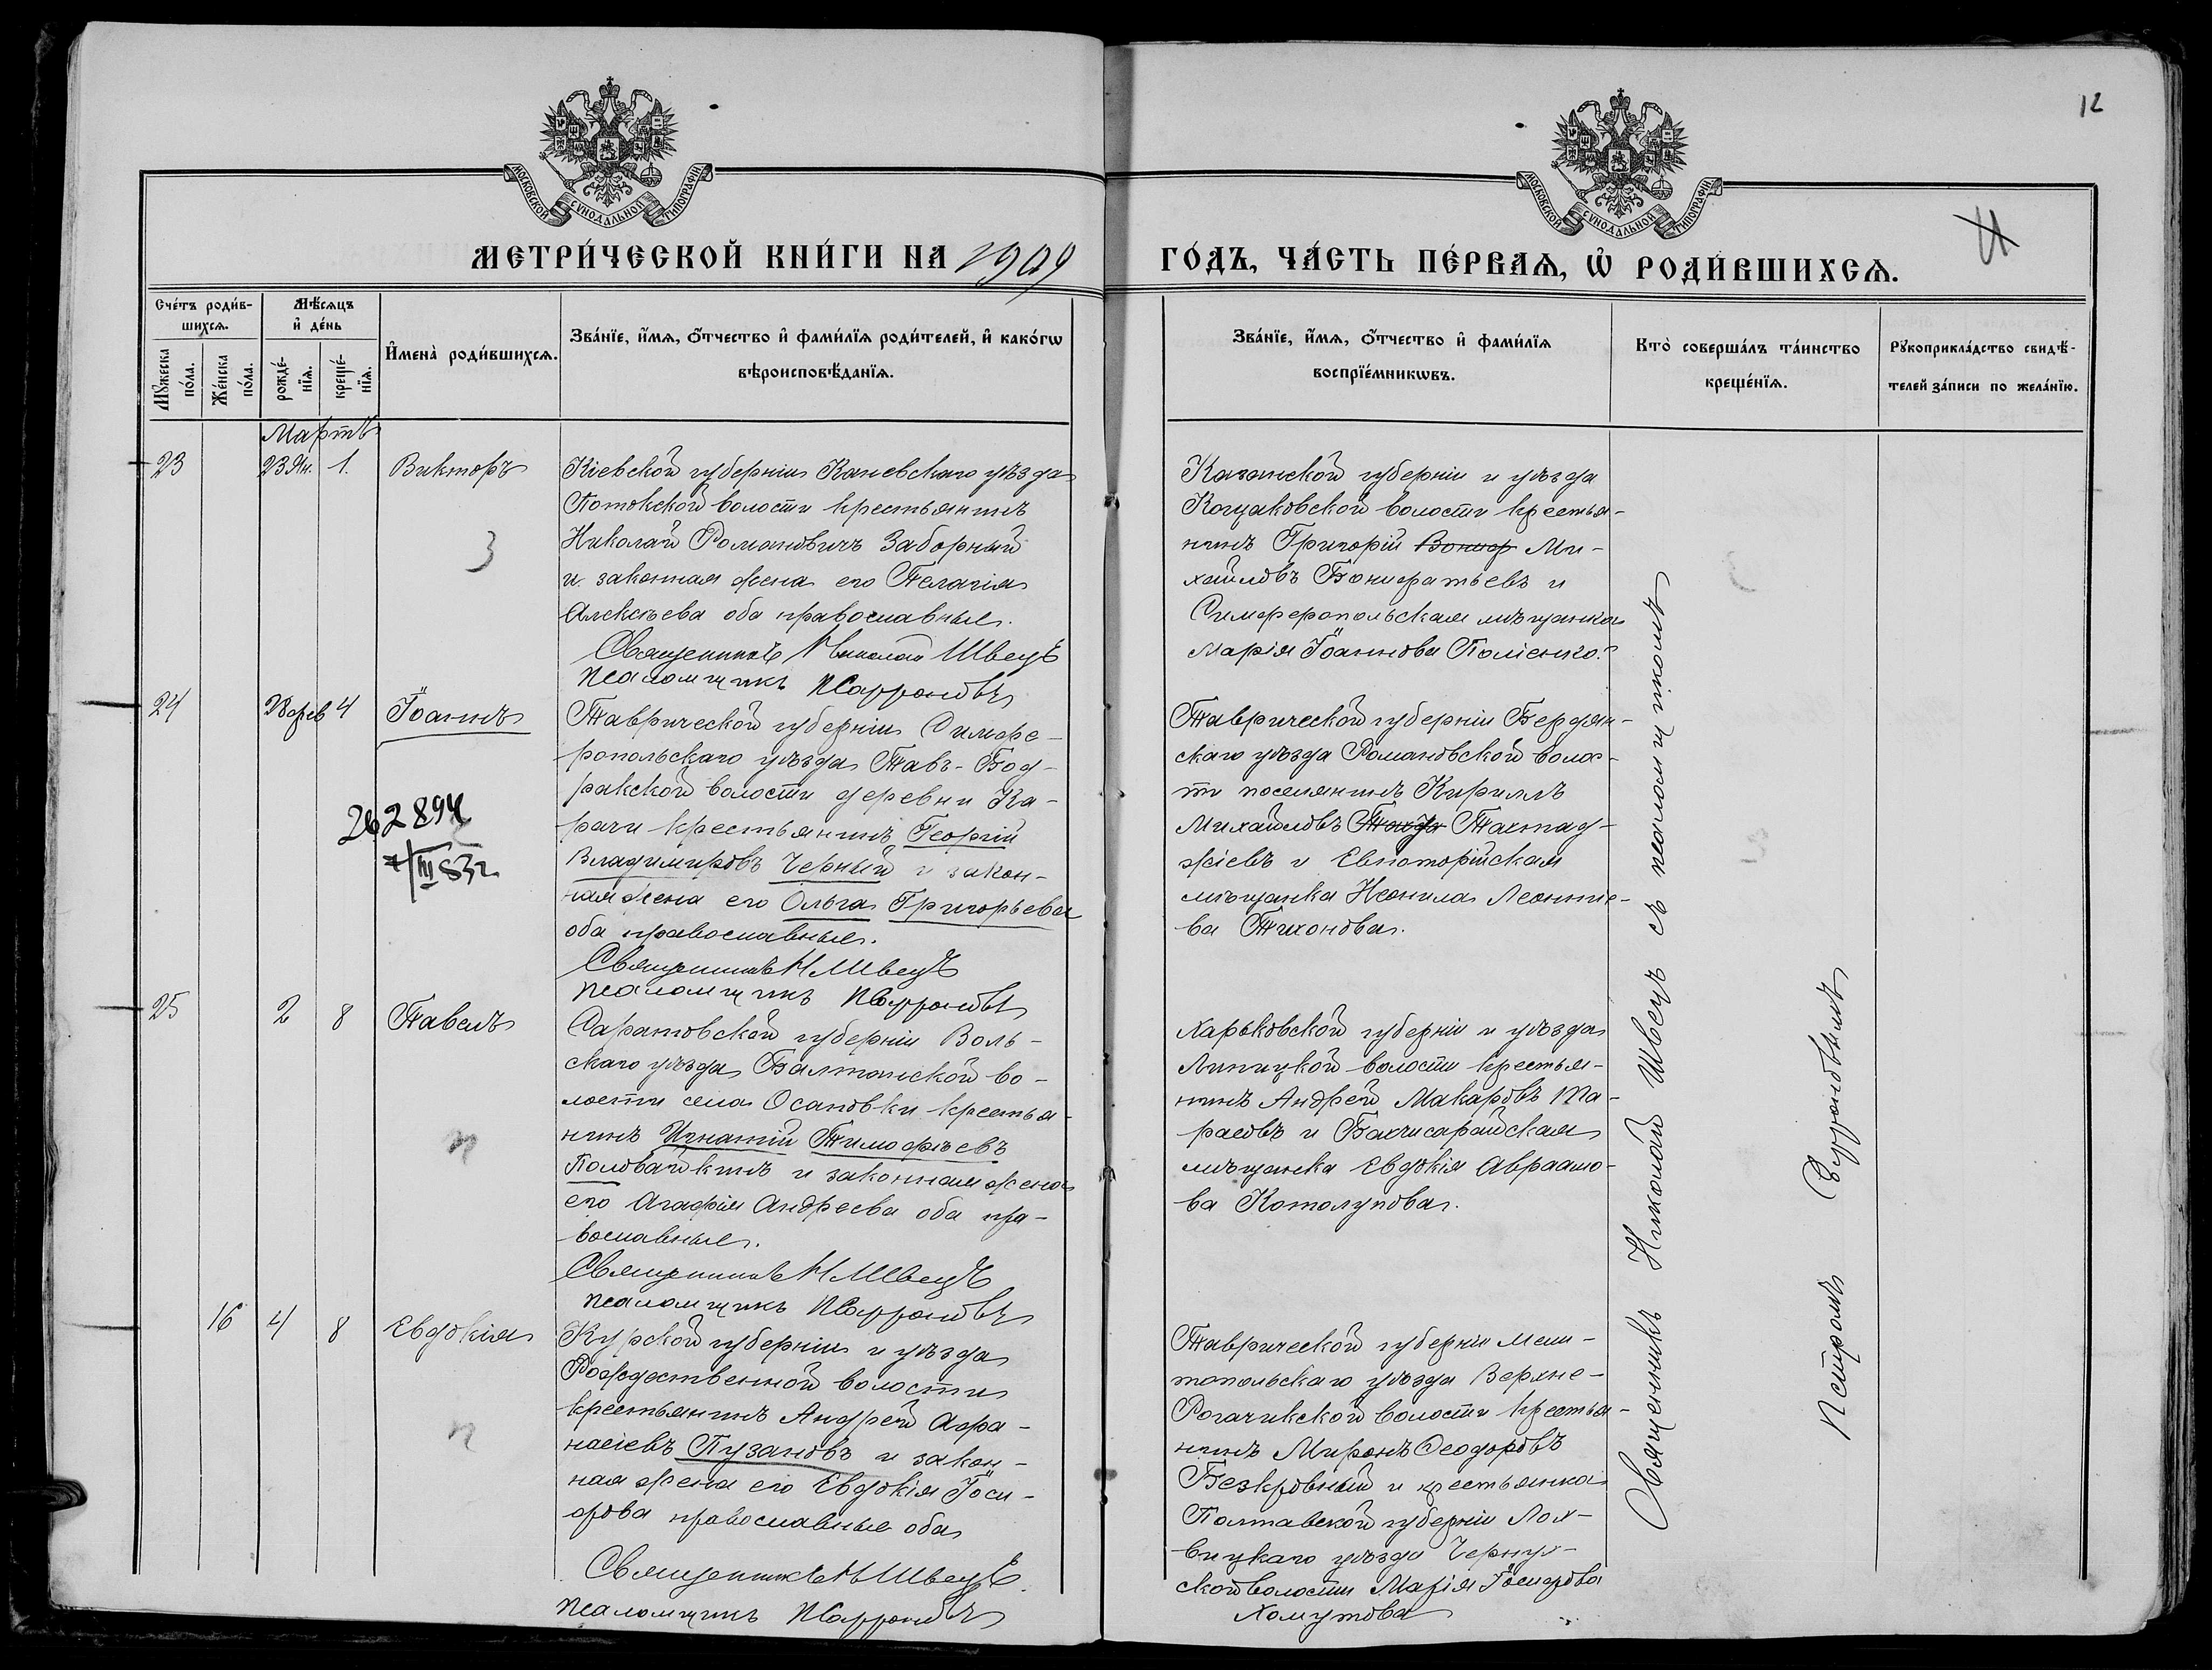 12
МОСКОВСКОЙ СѴНОДАЛЬНОЙ ТИПОГРАФІИ
МОСКОВСКОЙ СѴНОДАЛЬНОЙ ТИПОГРАФІИ
МЕТРИ́ЧЕСКОЙ КНИ́ГИ НА 1909
ГО́ДЪ, ЧА́СТЬ ПЕ́РВАѦ, Ѡ҆ РОДИ́ВШИХСѦ.
Сче́тъ роди́в-
шихсѧ.
Мꙋ́жеска по́ла.
Же́нска по́ла.
Мѣ́сѧцъ
и҆ де́нь
рожде́-
нїѧ.
креще́-
нїѧ.
И҆мена̀ роди́вшихсѧ.
Зва́нїе, и҆́мѧ, ѻ҆́тчество и҆ фами́лїѧ роди́телей, и҆ како́гѡ
вѣроисповѣ́данїѧ.
Зва́нїе, и҆́мѧ, ѻ҆́тчество и҆ фами́лїѧ
воспрїе́мникѡвъ.
Кто̀ соверша́лъ та́инство
креще́нїѧ.
Рꙋкоприкла́дство свидѣ́-
телей за́писи по жела́нїю.
Мартъ
23
23 Ян.
1.
Викторъ
Кіевской губерніи Каневскаго уѣзда
Потокской волости крестьянинъ
Николай Романовичъ Заборный
и законная жена его Пелагія
Алексѣева оба православные.
Священникъ Николай Швецъ
Псаломщикъ
Казанской губерніи и уѣзда
Кощаковской волости крестья-
нинъ Григорій Вониф Ми-
хайловъ Бонифатьевъ и
Симферопольская мѣщанка
Марія Іоаннова
24
28 фев
4
Іоаннъ
262894
7/III 832
Таврической губерніи Симфе-
ропольскаго уѣзда Тавъ-Бод-
ракской волости деревни Ка-
рачи крестьянинъ Георгій
Владимировъ Черный и закон-
ная жена его Ольга Григорьева
оба православные.
Священникъ Н Швецъ
Псаломщикъ
Таврической губерніи Бердян-
скаго уѣзда Романовской волос-
ти поселянинъ Кириллъ
Михайловъ Тахтад-
жіевъ и Евпаторійская
мѣщанка Неонила Леонтіе-
ва Тихонова.
25
2
8
Павелъ
Саратовской губерніи Воль-
скаго уѣзда Балтайской во-
лости села Осановки крестья-
нинъ Игнатій Тимофѣевъ
Половайкинъ и законная жена
его Агафія Андреева оба пра-
вославные.
Священникъ Н Швецъ
Псаломщикъ
Харьковской губерніи и уѣзда
Липецкой волости крестья-
нинъ Андрей Макаровъ Та-
расовъ и Бахчисарайская
мѣщанка Евдокія Авраамо-
ва Котолупова.
16
4
8
Евдокія
Курской губерніи и уѣзда
Рождественной волости
крестьянинъ Андрей Афа-
насіевъ Пузановъ и закон-
ная жена его Евдокія Іоси-
фова православные оба
Священникъ Н Швецъ
Псаломщикъ
Таврической губерніи Мели-
топольскаго уѣзда Верхне-
Рогачикской волости крестья-
нинъ Миронъ Ѳеодоровъ
Безкровный и крестьянка
Полтавской губерніи Лох-
вицкаго уѣзда Чернух-
ской волости Марія Іосифова
Хомутова
Священникъ Николай Швецъ съ псаломщикомъ
Петромъ